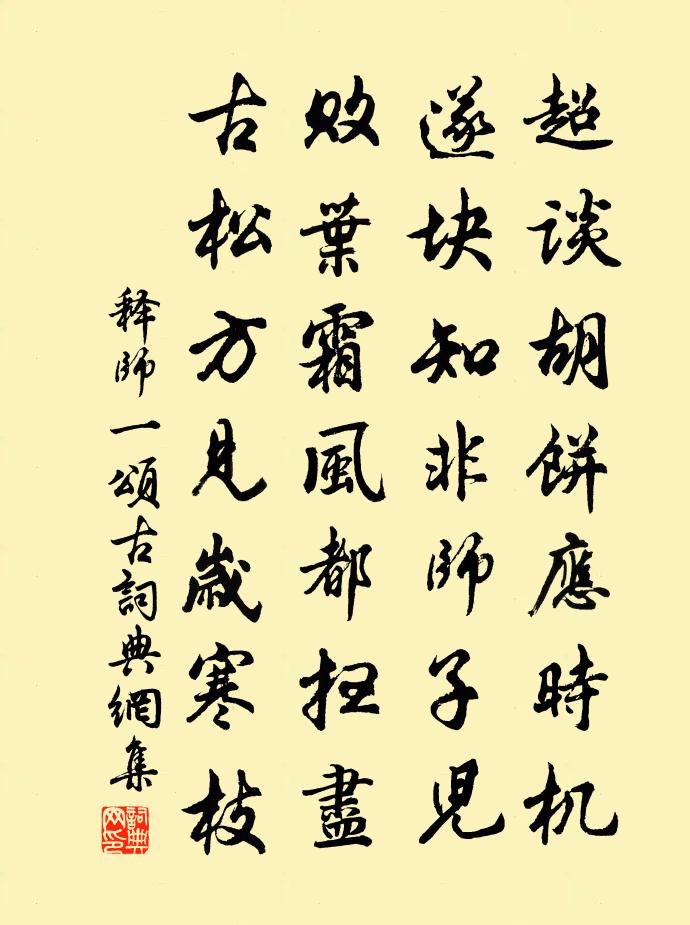 超谈胡餅應時机
遂块知非師子児
敗葉霜風都扫盡
古松方見歳寒枝
释師一頌古詞典網集
詞典网印